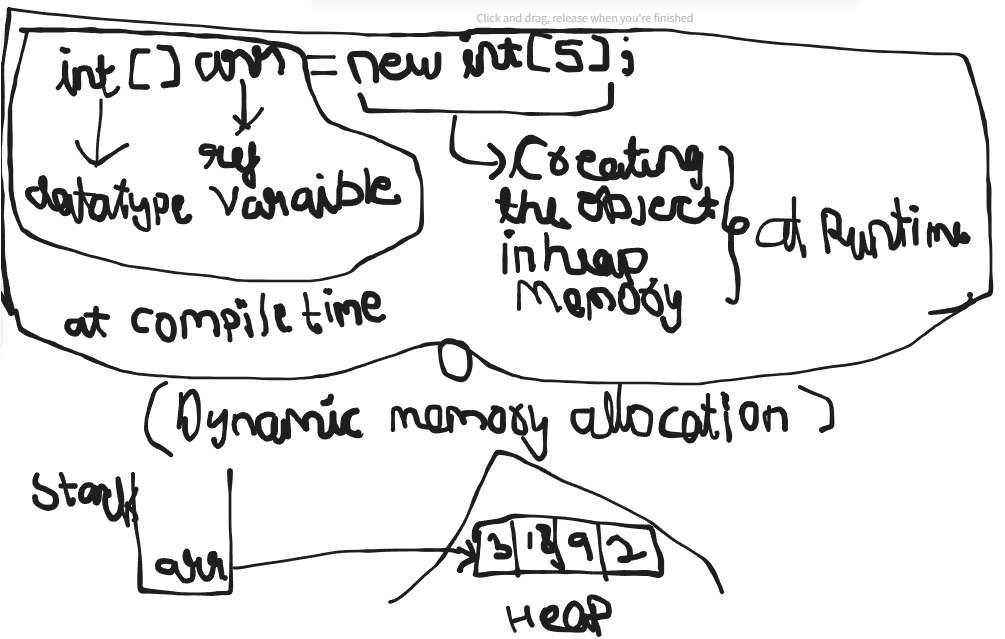 Click and drag, release when you're finished
int[] arr = new int[5];
datatype
ref
varaible
Creating
the object
in heap
memory
at Runtime
at compile time
(Dynamic memory allocation)
Stack
arr
3 18 9 2
HEAP